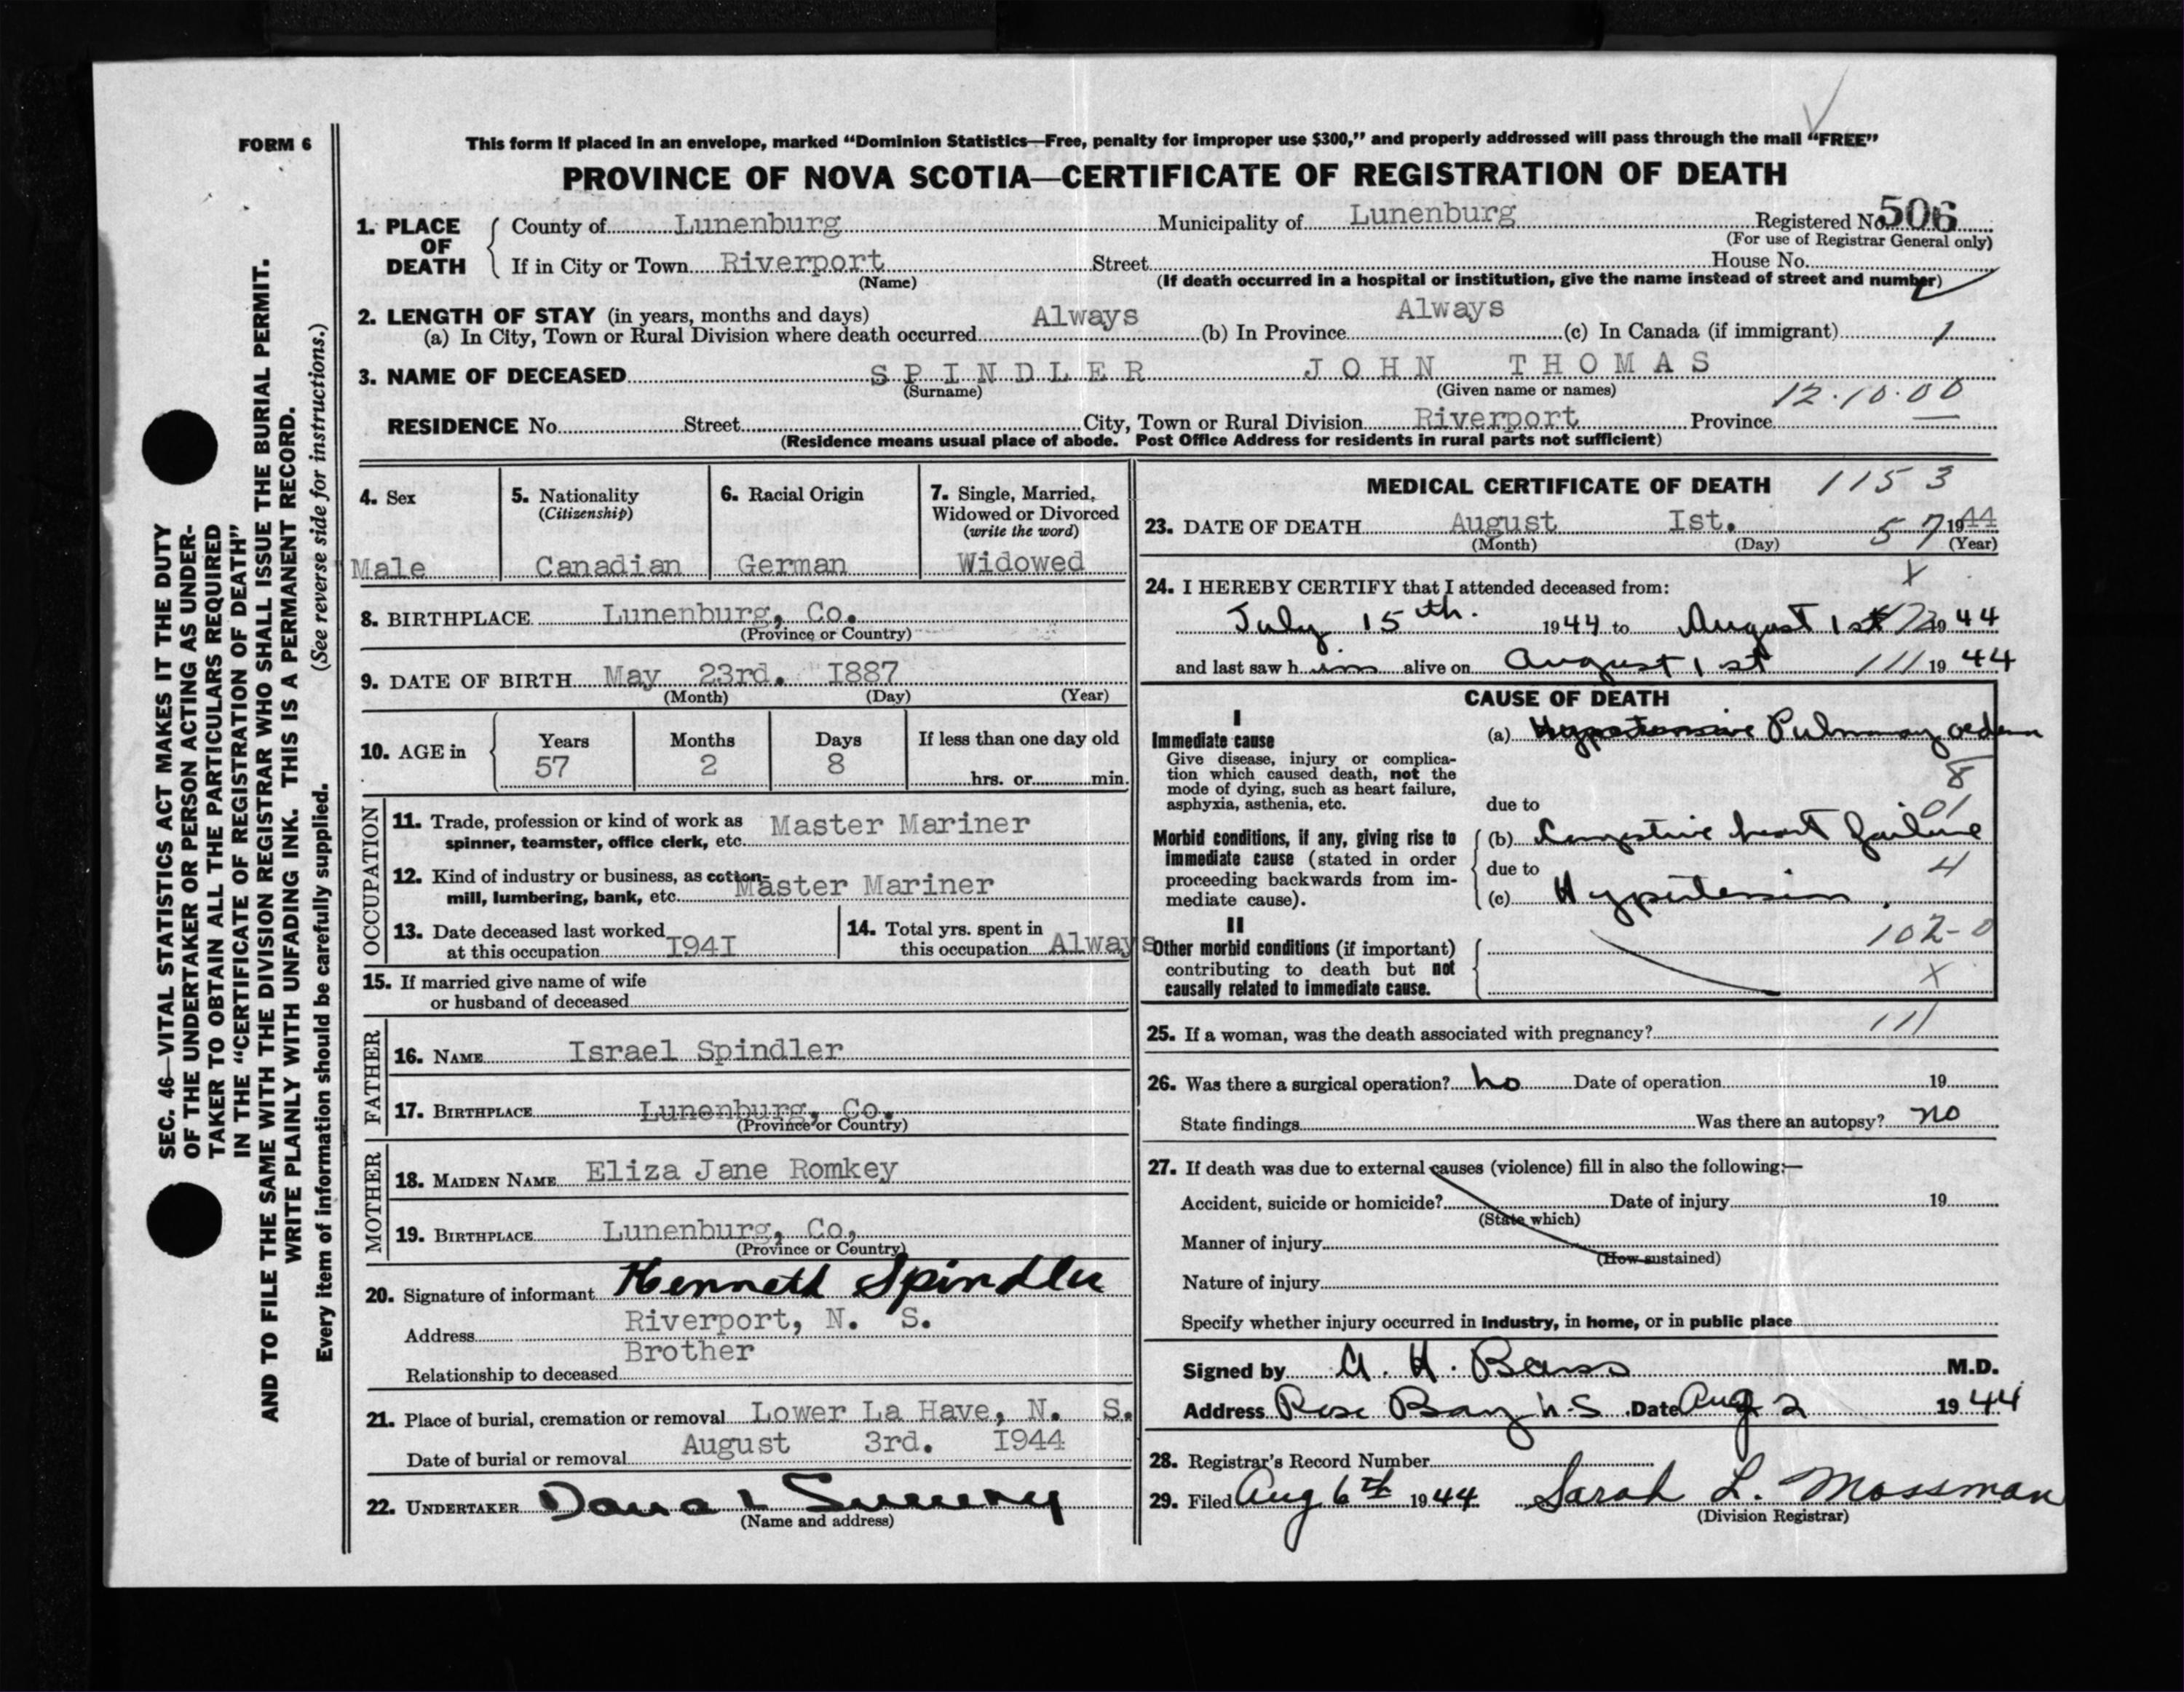 FORM 6
This form if placed in an envelope, marked “Dominion Statistics—Free, penalty for improper use $300,” and properly addressed will pass through the mail “FREE”
PROVINCE OF NOVA SCOTIA—CERTIFICATE OF REGISTRATION OF DEATH
1. PLACE OF DEATH
County of Lunenburg Municipality of Lunenburg Registered No. 506
(For use of Registrar General only)
If in City or Town Riverport Street House No.
(Name) (If death occurred in a hospital or institution, give the name instead of street and number)
2. LENGTH OF STAY (in years, months and days)
(a) In City, Town or Rural Division where death occurred Always (b) In Province Always (c) In Canada (if immigrant) 1
3. NAME OF DECEASED SPINDLER JOHN THOMAS
(Surname) (Given name or names) 12.10.00
RESIDENCE No. Street City, Town or Rural Division Riverport Province
(Residence means usual place of abode. Post Office Address for residents in rural parts not sufficient)
SEC. 46—VITAL STATISTICS ACT MAKES IT THE DUTY
OF THE UNDERTAKER OR PERSON ACTING AS UNDER-
TAKER TO OBTAIN ALL THE PARTICULARS REQUIRED
IN THE “CERTIFICATE OF REGISTRATION OF DEATH”
AND TO FILE THE SAME WITH THE DIVISION REGISTRAR WHO SHALL ISSUE THE BURIAL PERMIT.
WRITE PLAINLY WITH UNFADING INK. THIS IS A PERMANENT RECORD.
Every item of information should be carefully supplied. (See reverse side for instructions.)
4. Sex
Male
5. Nationality
(Citizenship)
Canadian
6. Racial Origin
German
7. Single, Married,
Widowed or Divorced
(write the word)
Widowed
8. BIRTHPLACE Lunenburg, Co.
(Province or Country)
9. DATE OF BIRTH May 23rd. I887
(Month) (Day) (Year)
10. AGE in
Years Months Days If less than one day old
57 2 8 hrs. or min.
OCCUPATION
11. Trade, profession or kind of work as
spinner, teamster, office clerk, etc. Master Mariner
12. Kind of industry or business, as cotton-
mill, lumbering, bank, etc. Master Mariner
13. Date deceased last worked
at this occupation I94I
14. Total yrs. spent in
this occupation Always
15. If married give name of wife
or husband of deceased
FATHER
16. NAME Israel Spindler
17. BIRTHPLACE Lunenburg, Co.
(Province or Country)
MOTHER
18. MAIDEN NAME Eliza Jane Romkey
19. BIRTHPLACE Lunenburg, Co,
(Province or Country)
20. Signature of informant Kenneth Spindler
Address Riverport, N. S.
Relationship to deceased Brother
21. Place of burial, cremation or removal Lower La Have, N. S.
Date of burial or removal August 3rd. I944
22. UNDERTAKER Dana L Sweeny
(Name and address)
MEDICAL CERTIFICATE OF DEATH 1153
23. DATE OF DEATH August Ist. 57 1944
(Month) (Day) (Year)
24. I HEREBY CERTIFY that I attended deceased from: X
July 15th. 1944 to August 1st 1944
and last saw him alive on August 1st 111 1944
CAUSE OF DEATH
I
Immediate cause
Give disease, injury or complica-
tion which caused death, not the
mode of dying, such as heart failure,
asphyxia, asthenia, etc.
(a) Hypertensive Pulmonary oedema
8
due to 01
Morbid conditions, if any, giving rise to
immediate cause (stated in order
proceeding backwards from im-
mediate cause).
(b) Congestive heart failure
due to 4
(c) Hypertension
II
Other morbid conditions (if important)
contributing to death but not
causally related to immediate cause.
102-0
X
25. If a woman, was the death associated with pregnancy? 111
26. Was there a surgical operation? no Date of operation 19
State findings Was there an autopsy? no
27. If death was due to external causes (violence) fill in also the following:—
Accident, suicide or homicide? Date of injury 19
(State which)
Manner of injury
(How sustained)
Nature of injury
Specify whether injury occurred in Industry, in home, or in public place
Signed by M.D.
Address Rose Bay N.S Date Aug 2 1944
28. Registrar's Record Number
29. Filed Aug 6th 1944 Sarah L. Mossman
(Division Registrar)